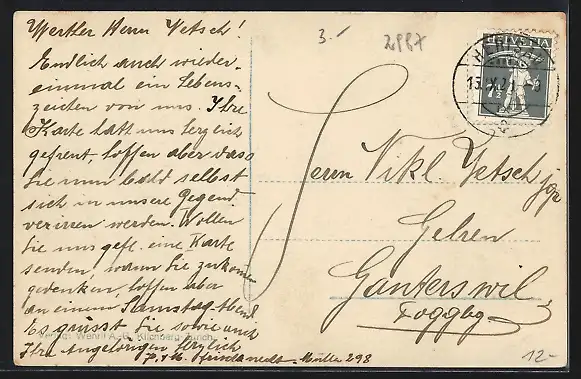 Werther Herrn Jetsch!
Endlich auch wieder
einmal ein Lebens-
zeichen von uns. Ihre
Karte hatt uns herzlich
gefreut, hoffen aber dass
Sie nun bald selbst
sich in unsere Gegend
verirren werden. Wollen
Sie uns gefl. eine Karte
senden, wann Sie zu kommen
gedenken, hoffen aber
an einem Samstag-Abend
Es grüsst Sie sowie auch
Ihre Angehörigen herzlich
Müller 298
Wehrli A.-G. Kilchberg-Zürich
3.-
2987
HELVETIA
HERISAU
7½
Herrn Nikl. Jetsch jgr
Gehren
Ganterswil
Toggbg
12-